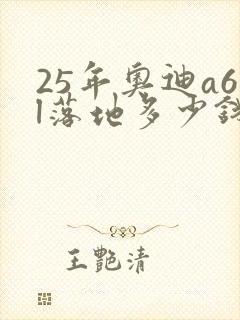 25年奥迪a6
l落地多少钱
王艷清